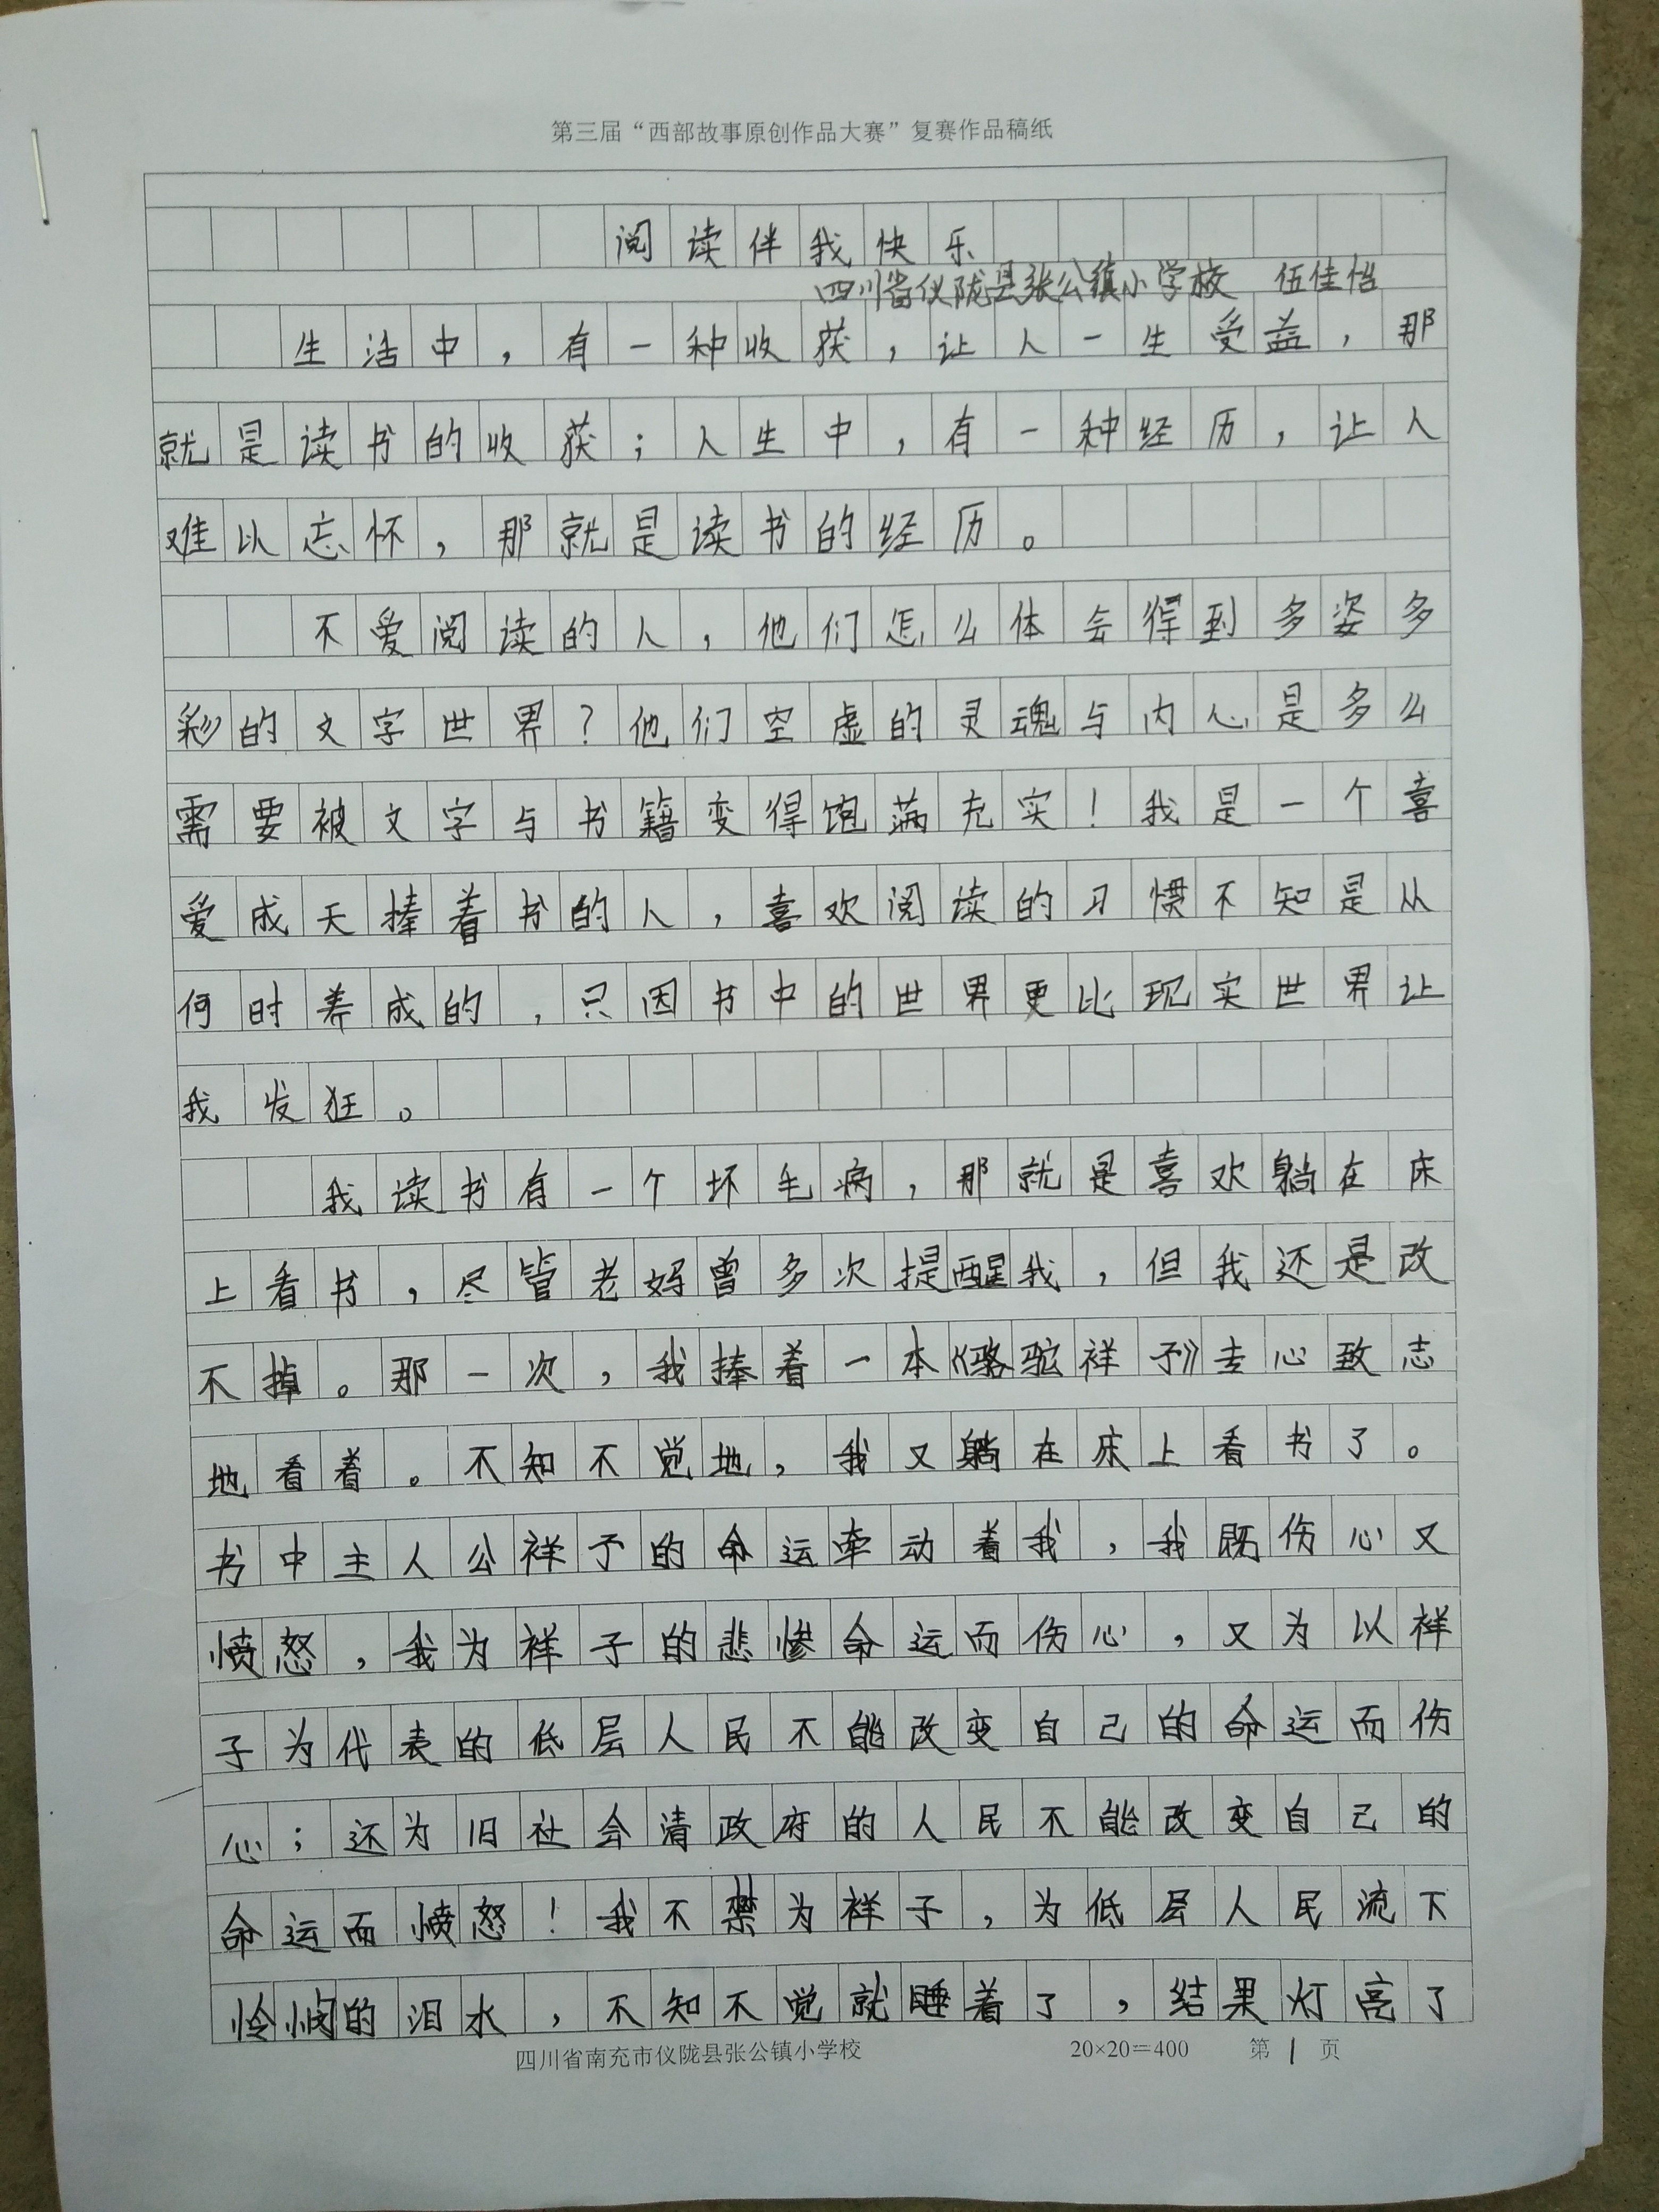 第三届“西部故事原创作品大赛”复赛作品稿纸
阅读伴我快乐
四川省仪陇县张公镇小学校 伍佳怡
生活中，有一种收获，让人一生受益，那
就是读书的收获；人生中，有一种经历，让人
难以忘怀，那就是读书的经历。
不爱阅读的人，他们怎么体会得到多姿多
彩的文字世界？他们空虚的灵魂与内心是多么
需要被文字与书籍变得饱满充实！我是一个喜
爱成天捧着书的人，喜欢阅读的习惯不知是从
何时养成的，只因书中的世界更比现实世界让
我发狂。
我读书有一个坏毛病，那就是喜欢躺在床
上看书，尽管老妈曾多次提醒我，但我还是改
不掉。那一次，我捧着一本《骆驼祥子》专心致志
地看着。不知不觉地，我又躺在床上看书了。
书中主人公祥子的命运牵动着我，我既伤心又
愤怒，我为祥子的悲惨命运而伤心，又为以祥
子为代表的低层人民不能改变自己的命运而伤
心；还为旧社会清政府的人民不能改变自己的
命运而愤怒！我不禁为祥子，为低层人民流下
怜悯的泪水，不知不觉就睡着了，结果灯亮了
四川省南充市仪陇县张公镇小学校 20×20=400 第1页